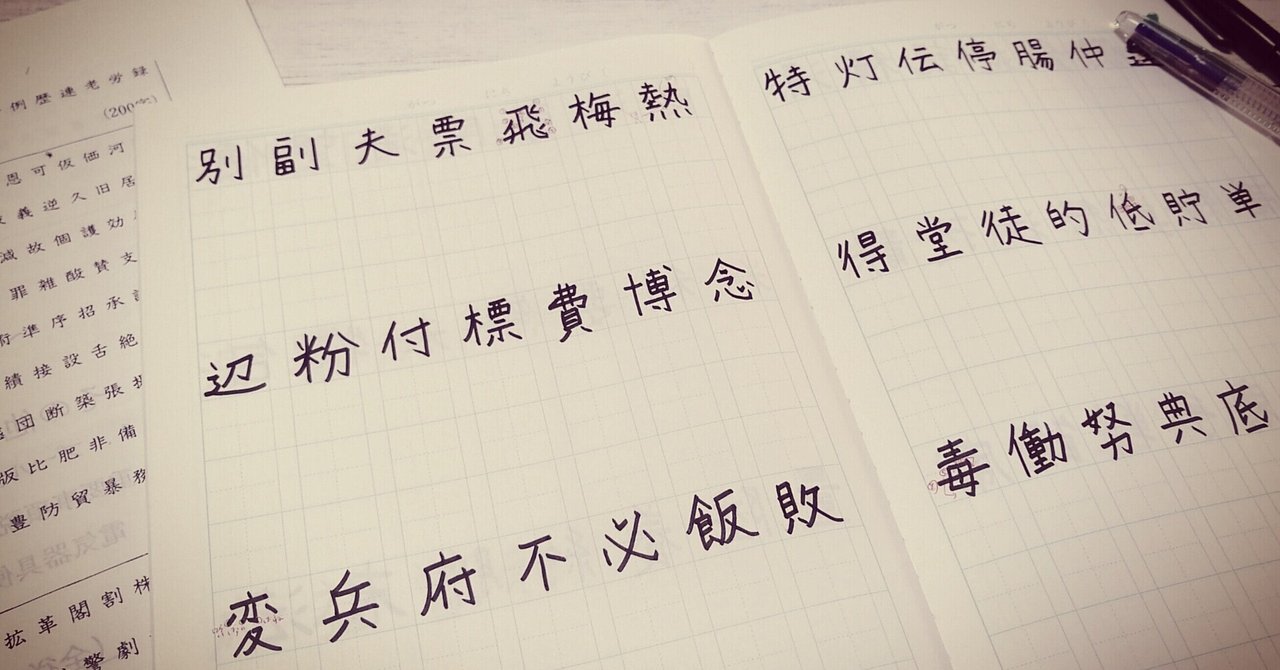 例歴連老労録
(200字)
恩可仮価河
義逆久旧居
減故個護効
罪雑酸賛支
準序招承
績接設舌絶
団断築張
版比肥非備
豊防貿暴務
拡革閣割株
警劇
別副夫票飛梅熱
辺粉付標費博念
変兵府不必飯敗
特灯伝停腸仲
得堂徒的低貯単
毒働努典底